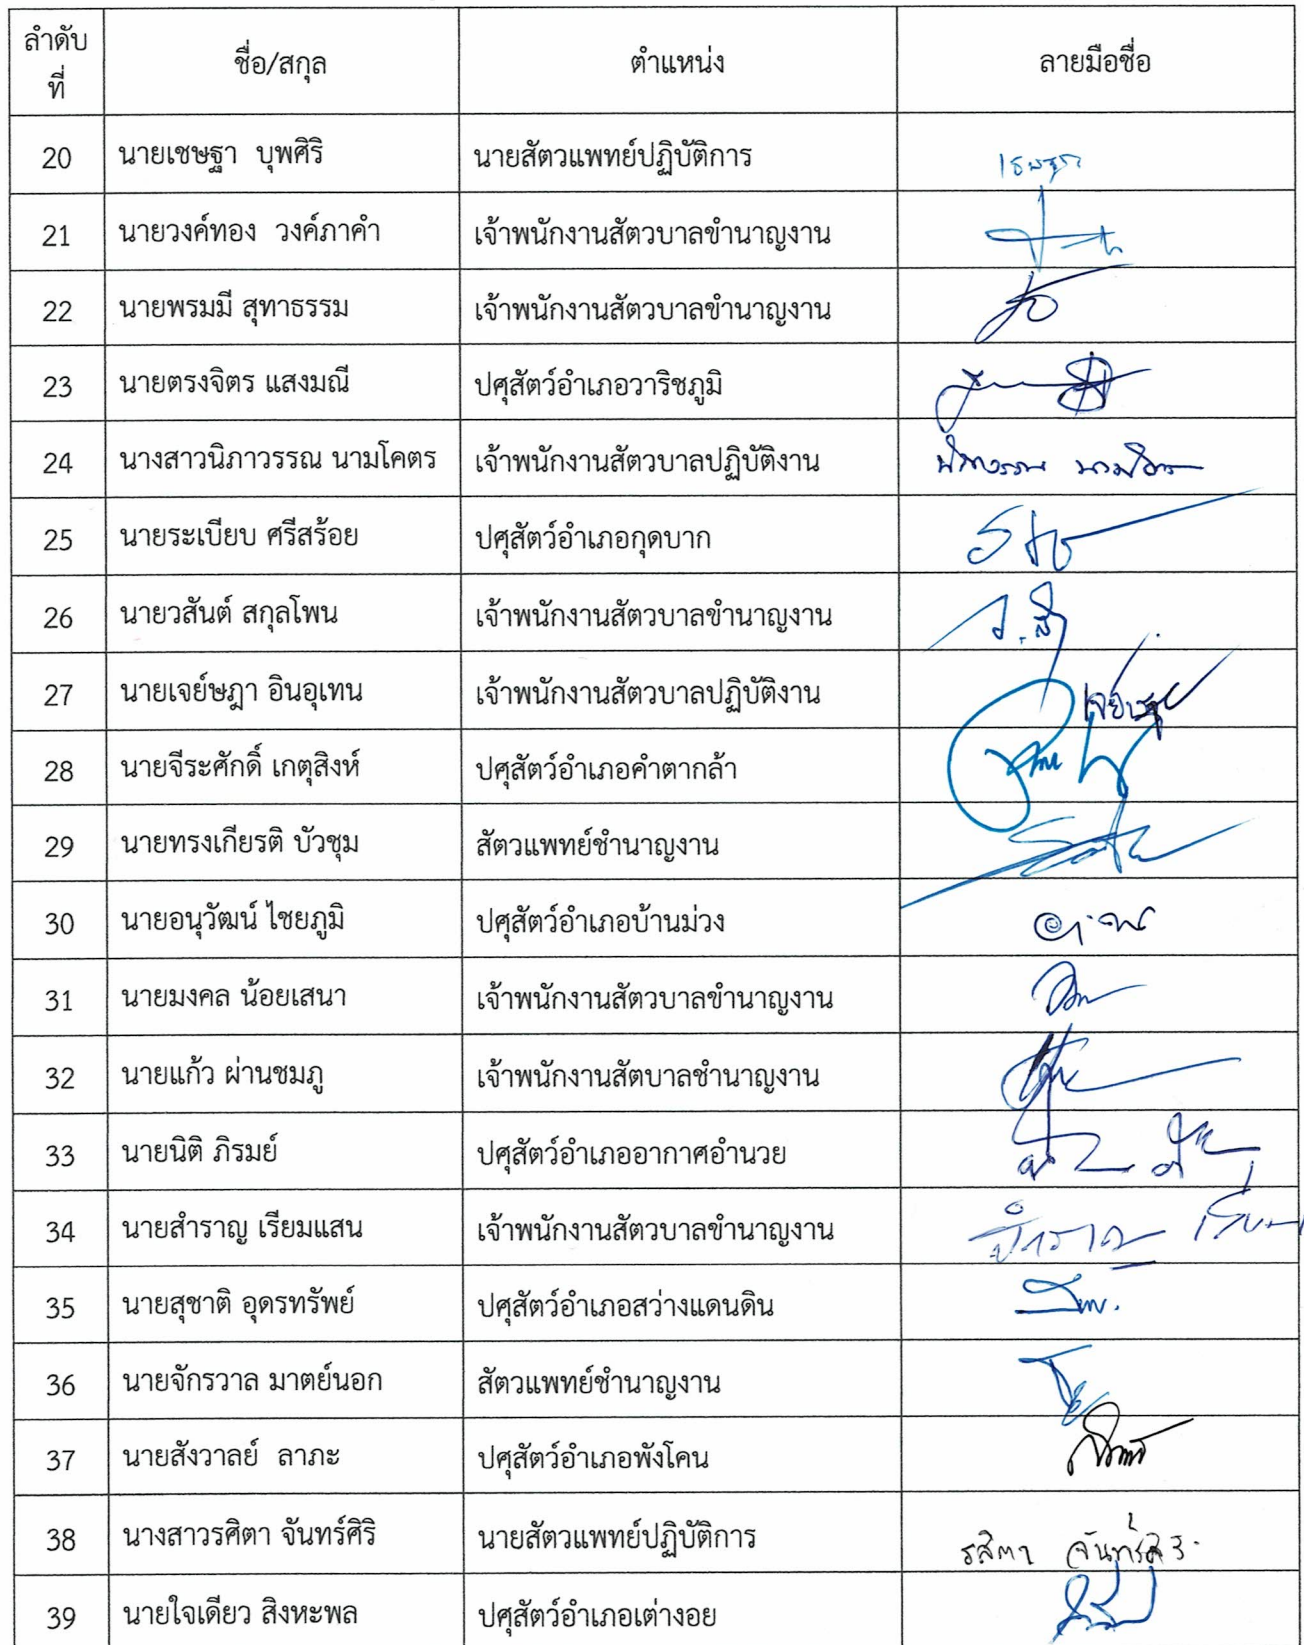 ลำดับ
ที่
ชื่อ/สกุล ตำแหน่ง ลายมือชื่อ
20 นายเชษฐา บุพศิริ นายสัตวแพทย์ปฏิบัติการ เชษฐา
21 นายวงค์ทอง วงค์ภาคำ เจ้าพนักงานสัตวบาลขำนาญงาน
22 นายพรมมี สุทาธรรม เจ้าพนักงานสัตวบาลขำนาญงาน
23 นายตรงจิตร แสงมณี ปศุสัตว์อำเภอวาริชภูมิ
24 นางสาวนิภาวรรณ นามโคตร เจ้าพนักงานสัตวบาลปฏิบัติงาน นิภาวรรณ นามโคตร
25 นายระเบียบ ศรีสร้อย ปศุสัตว์อำเภอกุดบาก
26 นายวสันต์ สกุลโพน เจ้าพนักงานสัตวบาลขำนาญงาน
27 นายเจย์ษฎา อินอุเทน เจ้าพนักงานสัตวบาลปฏิบัติงาน
28 นายจีระศักดิ์ เกตุสิงห์ ปศุสัตว์อำเภอคำตากล้า
29 นายทรงเกียรติ บัวชุม สัตวแพทย์ชำนาญงาน
30 นายอนุวัฒน์ ไชยภูมิ ปศุสัตว์อำเภอบ้านม่วง
31 นายมงคล น้อยเสนา เจ้าพนักงานสัตวบาลขำนาญงาน
32 นายแก้ว ผ่านชมภู เจ้าพนักงานสัตบาลชำนาญงาน
33 นายนิติ ภิรมย์ ปศุสัตว์อำเภออากาศอำนวย
34 นายสำราญ เรียมแสน เจ้าพนักงานสัตวบาลขำนาญงาน
35 นายสุชาติ อุดรทรัพย์ ปศุสัตว์อำเภอสว่างแดนดิน
36 นายจักรวาล มาตย์นอก สัตวแพทย์ชำนาญงาน
37 นายสังวาลย์ ลาภะ ปศุสัตว์อำเภอพังโคน
38 นางสาวรศิตา จันทร์ศิริ นายสัตวแพทย์ปฏิบัติการ รศิตา จันทร์ศิริ
39 นายใจเดียว สิงหะพล ปศุสัตว์อำเภอเต่างอย